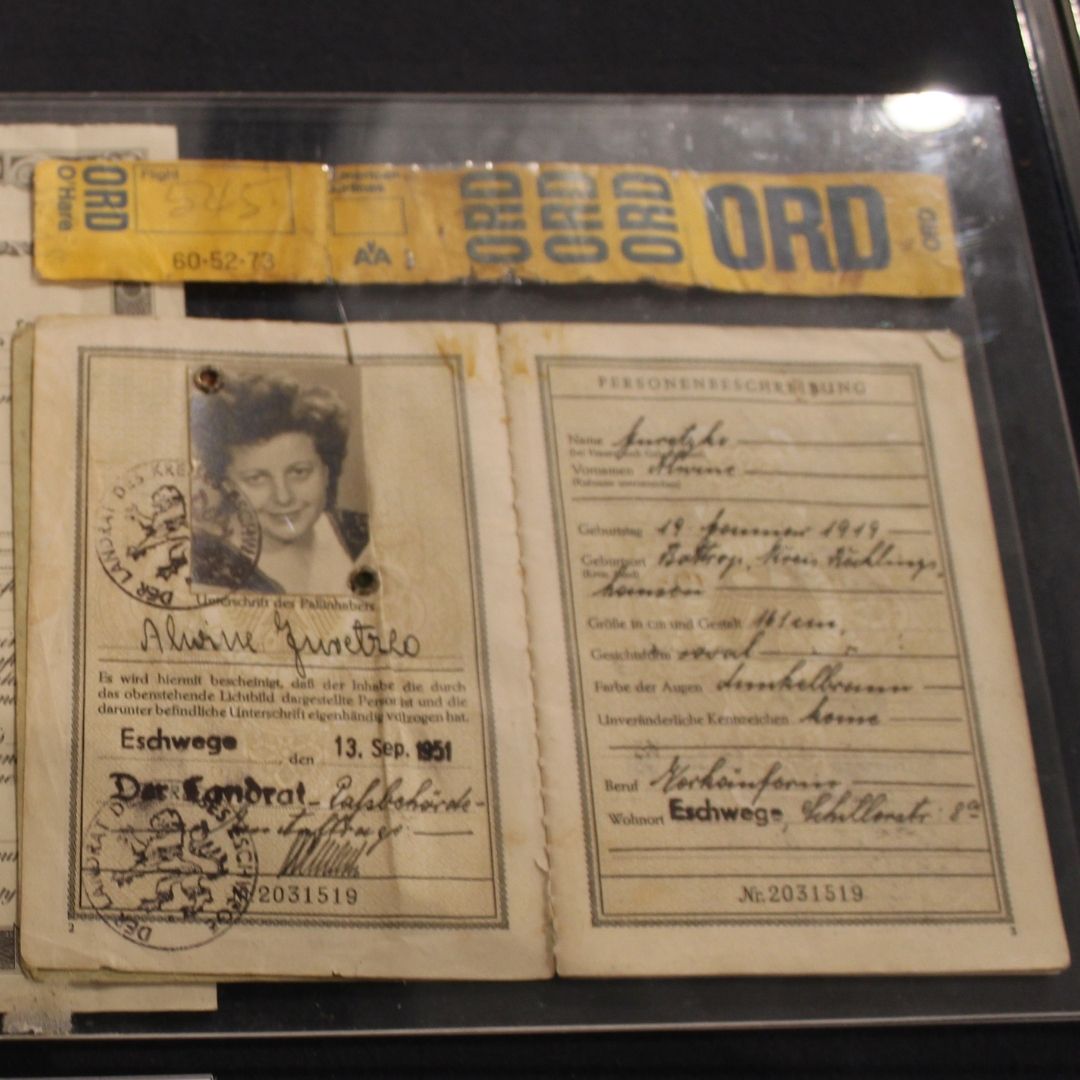 ORD
O'Hare
Flight
5245
60-52-73
American
Airlines
AA
ORD
ORD
ORD
ORD
ORD
DER LANDRAT DES KREISES ESCHWEGE
Unterschrift des Paßinhabers
Alwine Juretzko
Es wird hiermit bescheinigt, daß der Inhaber die durch
das obenstehende Lichtbild dargestellte Person ist und die
darunter befindliche Unterschrift eigenhändig vollzogen hat.
Eschwege, den 13. Sep. 1951
Der Landrat - Paßbehörde -
Im Auftrage:
DER LANDRAT DES KREISES ESCHWEGE
2031519
2
PERSONENBESCHREIBUNG
Name Juretzko
Vornamen Alwine
Geburtstag 19. Januar 1919
Geburtsort Bottrop, Kreis Recklings-
hausen
Größe in cm und Gestalt 161 cm,
Gesichtsform oval
Farbe der Augen dunkelbraun
Unveränderliche Kennzeichen keine
Beruf Verkäuferin
Wohnort Eschwege, Schillerstr. 8a
Nr. 2031519
3